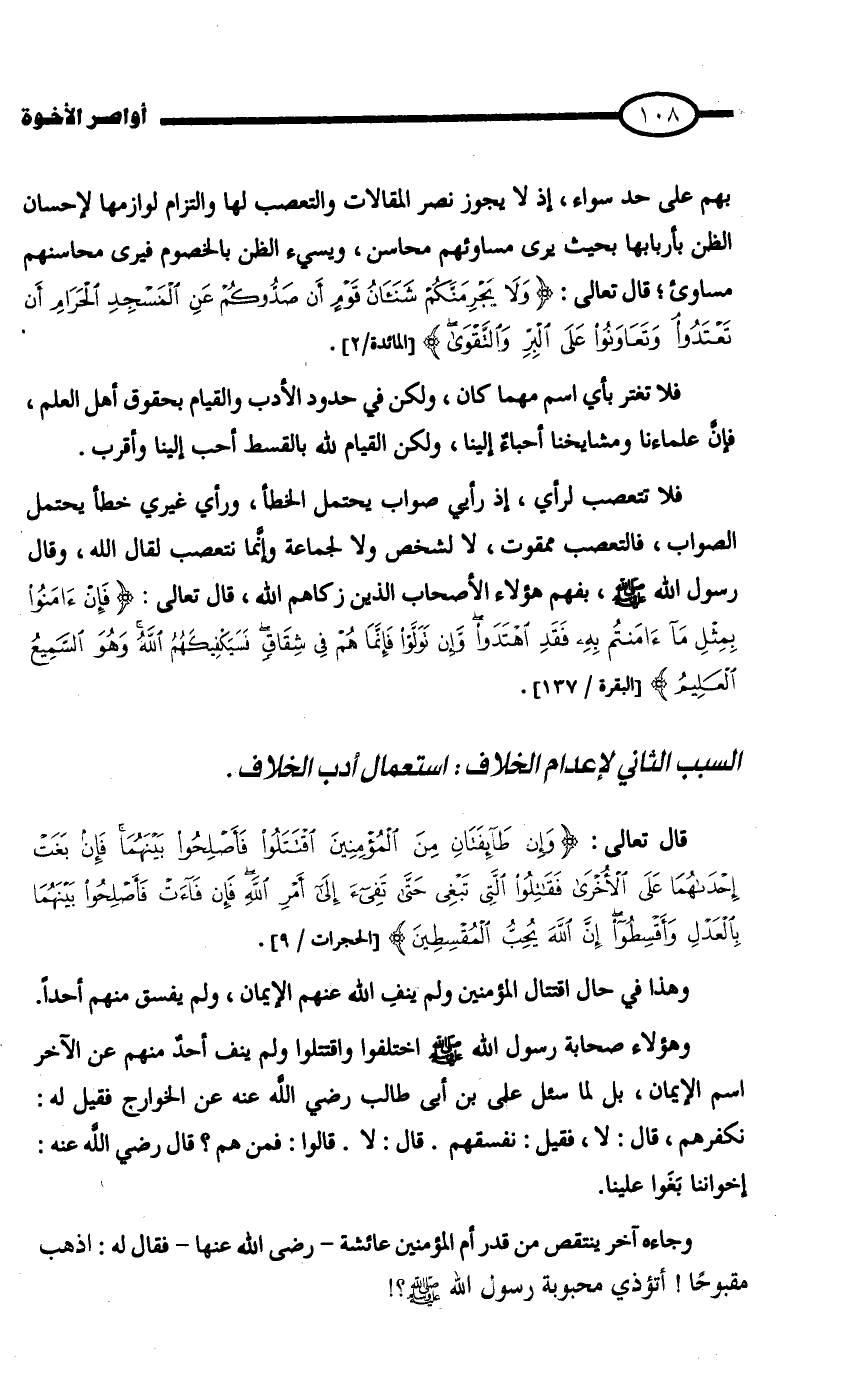 ١٠٨ أواصر الأخوة
بهم على حد سواء ، إذ لا يجوز نصر المقالات والتعصب لها والتزام لوازمها لإحسان
الظن بأربابها بحيث يرى مساوئهم محاسن ، ويسيء الظن بالخصوم فيرى محاسنهم
مساوئ ؛ قال تعالى : ﴿ وَلَا يَجْرِمَنَّكُمْ شَنَـَٔانُ قَوْمٍ أَن صَدُّوكُمْ عَنِ الْمَسْجِدِ الْحَرَامِ أَن
تَعْتَدُواْ وَتَعَاوَنُواْ عَلَى الْبِرِّ وَالتَّقْوَىٰ ﴾ [المائدة/٢] .
فلا تغتر بأي اسم مهما كان ، ولكن في حدود الأدب والقيام بحقوق أهل العلم ،
فإنَّ علماءنا ومشايخنا أحباءٌ إلينا ، ولكن القيام لله بالقسط أحب إلينا وأقرب .
فلا تتعصب لرأي ، إذ رأيي صواب يحتمل الخطأ ، ورأي غيري خطأ يحتمل
الصواب ، فالتعصب ممقوت ، لا لشخص ولا لجماعة وإنَّما نتعصب لقال الله ، وقال
رسول الله ﷺ ، بفهم هؤلاء الأصحاب الذين زكاهم الله ، قال تعالى : ﴿ فَإِنْ ءَامَنُواْ
بِمِثْلِ مَآ ءَامَنتُم بِهِۦ فَقَدِ اهْتَدَواْ ۖ وَّإِن نَوَلَّوْاْ فَإِنَّمَا هُمْ فِي شِقَاقٍ ۖ فَسَيَكْفِيكَهُمُ اللَّهُ ۚ وَهُوَ السَّمِيعُ
الْعَلِيمُ ﴾ [البقرة / ١٣٧] .
السبب الثاني لإعدام الخلاف : استعمال أدب الخلاف .
قال تعالى : ﴿ وَإِن طَآئِفَتَانِ مِنَ الْمُؤْمِنِينَ اقْتَتَلُواْ فَأَصْلِحُواْ بَيْنَهُمَا ۖ فَإِنۢ بَغَتْ
إِحْدَىٰهُمَا عَلَى الْأُخْرَىٰ فَقَٰتِلُواْ الَّتِي تَبْغِى حَتَّىٰ تَفِيٓءَ إِلَىٰٓ أَمْرِ اللَّهِ ۚ فَإِن فَآءَتْ فَأَصْلِحُواْ بَيْنَهُمَا
بِالْعَدْلِ وَأَقْسِطُوٓاْ ۖ إِنَّ اللَّهَ يُحِبُّ الْمُقْسِطِينَ ﴾ [الحجرات / ٩] .
وهذا في حال اقتتال المؤمنين ولم ينفِ الله عنهم الإيمان ، ولم يفسق منهم أحداً.
وهؤلاء صحابة رسول الله ﷺ اختلفوا واقتتلوا ولم ينف أحدٌ منهم عن الآخر
اسم الإيمان ، بل لما سئل على بن أبى طالب رضي اللَّه عنه عن الخوارج فقيل له :
نكفرهم ، قال : لا ، فقيل : نفسقهم . قال : لا . قالوا : فمن هم ؟ قال رضي اللَّه عنه :
إخواننا بَغَوا علينا.
وجاءه آخر ينتقص من قدر أم المؤمنين عائشة - رضى الله عنها - فقال له : اذهب
مقبوحًا ! أتؤذي محبوبة رسول الله ﷺ ؟!